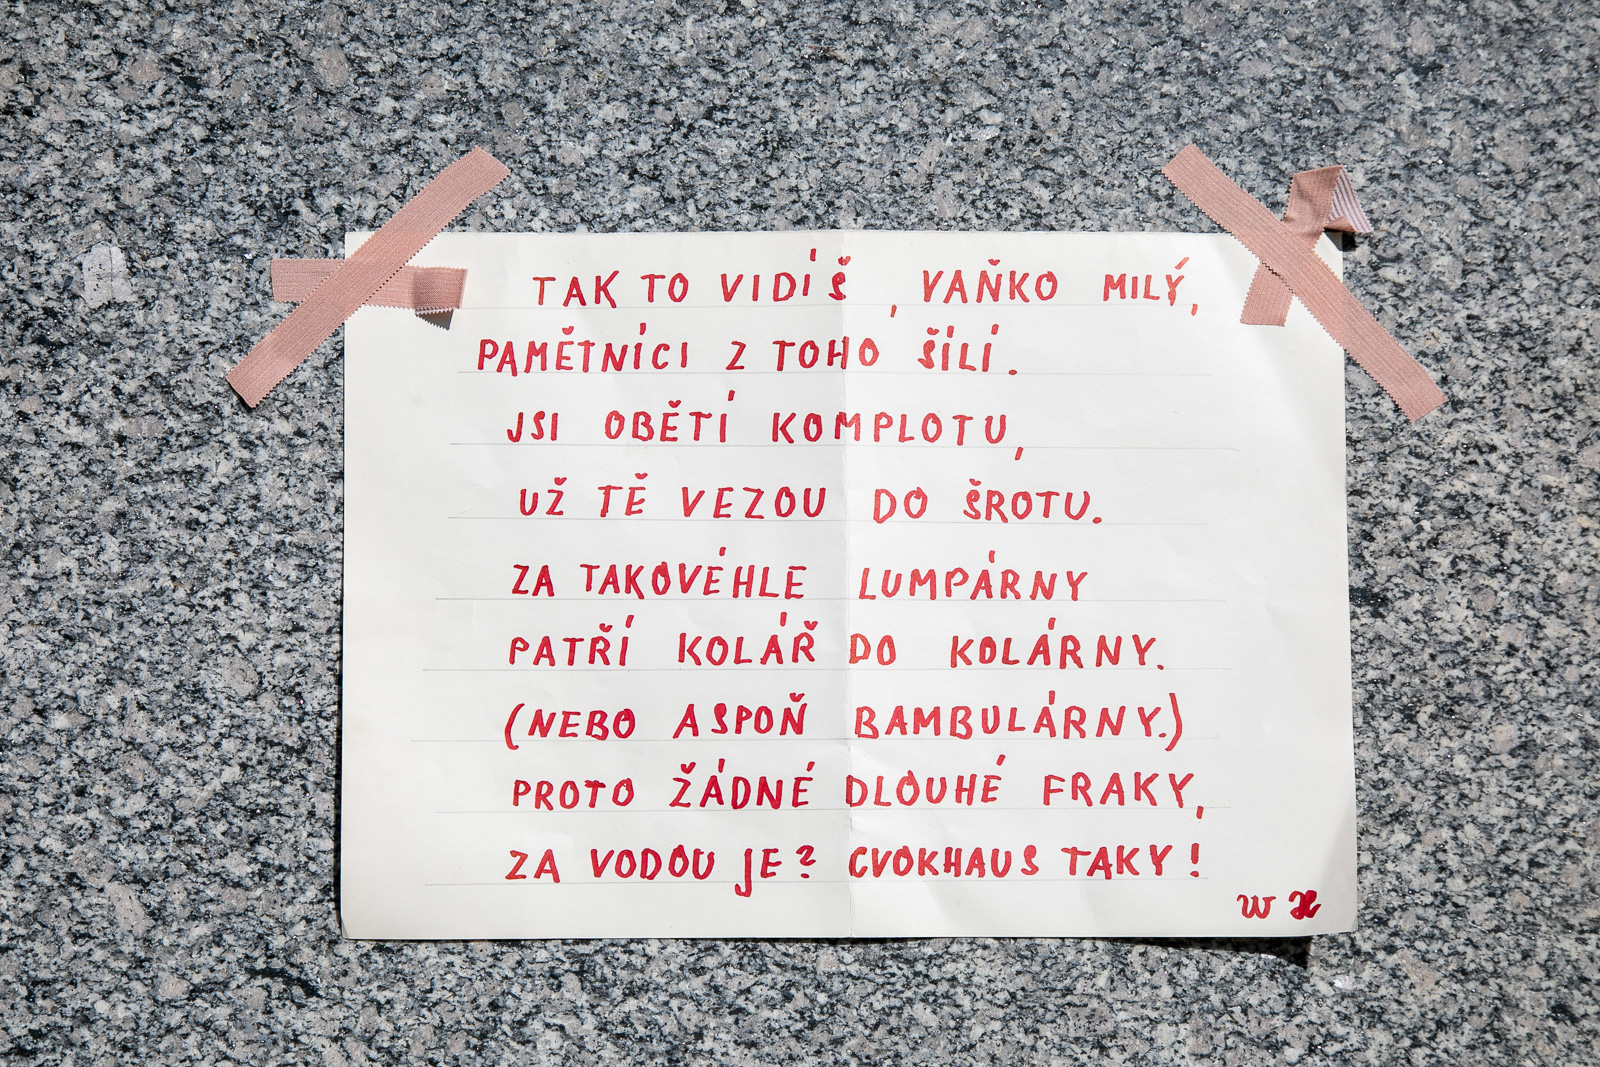 TAK TO VIDÍŠ, VAŇKO MILÝ,
PAMĚTNÍCI Z TOHO ŠÍLÍ.
JSI OBĚTÍ KOMPLOTU,
UŽ TĚ VEZOU DO ŠROTU.
ZA TAKOVÉHLE LUMPÁRNY
PATŘÍ KOLÁŘ DO KOLÁRNY.
(NEBO ASPOŇ BAMBULÁRNY.)
PROTO ŽÁDNÉ DLOUHÉ FRAKY,
ZA VODOU JE? CVOKHAUS TAKY!